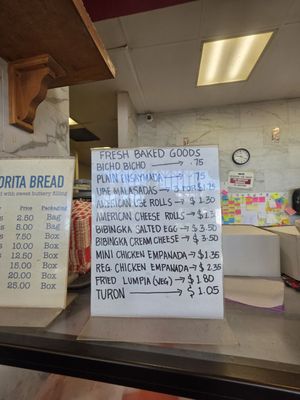 FRESH BAKED GOODS
BICHO BICHO → .75
PLAIN ENSAYMADA → .75
UBE MALASADAS → 3 FOR $1.75
AMERICAN UBE ROLLS → $ 1.30
AMERICAN CHEESE ROLLS →
BIBINGKA SALTED EGG → $ 3.50
BIBINGKA CREAM CHEESE → $ 3.50
MINI CHICKEN EMPANADA → $1.35
REG. CHICKEN EMPANADA → $ 2.35
FRIED LUMPIA (VEG) → $ 1.80
TURON → $ 1.05
ORITA BREAD
d with sweet buttery filling
Price Packaging
2.50 Bag
5.00 Bag
7.50 Box
10.00 Box
12.50 Box
15.00 Box
20.00 Box
25.00 Box